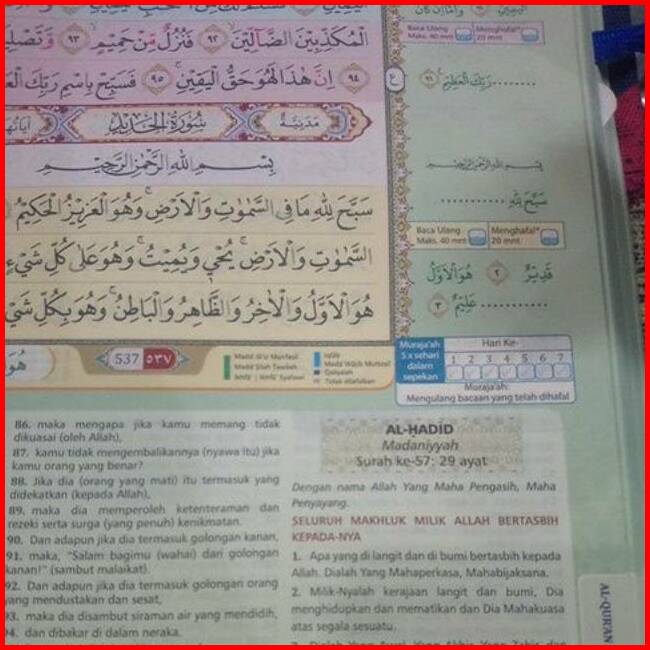 الْمُكَذِّبِيْنَ الضَّاۤلِّيْنَ ۙ ٩٢ فَنُزُلٌ مِّنْ حَمِيْمٍ ۙ ٩٣
٩٤ اِنَّ هٰذَا لَهُوَ حَقُّ الْيَقِيْنِ ۚ ٩٥ فَسَبِّحْ بِاسْمِ رَبِّكَ
مَدَنِيَّة سُوْرَةُ الْحَدِيْدِ
بِسْمِ اللّٰهِ الرَّحْمٰنِ الرَّحِيْمِ
سَبَّحَ لِلّٰهِ مَا فِى السَّمٰوٰتِ وَالْاَرْضِ ۚ وَهُوَ الْعَزِيْزُ الْحَكِيْمُ
السَّمٰوٰتِ وَالْاَرْضِ ۚ يُحْيٖ وَيُمِيْتُ ۚ وَهُوَ عَلٰى كُلِّ شَيْءٍ
هُوَ الْاَوَّلُ وَالْاٰخِرُ وَالظَّاهِرُ وَالْبَاطِنُ ۚ وَهُوَ بِكُلِّ
537 ٥٣٧
Baca Ulang Maks. 40 mnt
Menghafal* 20 mnt
رَبِّكَ الْعَظِيْمِ ٩٦
بِسْمِ اللّٰهِ الرَّحْمٰنِ الرَّحِيْمِ
سَبَّحَ لِلّٰهِ
Baca Ulang Maks. 40 mnt
Menghafal* 20 mnt
قَدِيْرٌ ٢ هُوَ الْاَوَّلُ
عَلِيْمٌ ٣
Muraja'ah 5 x sehari dalam sepekan
Hari Ke-
1 2 3 4 5 6 7
Muraja'ah:
Mengulang bacaan yang telah dihafal
86. maka mengapa jika kamu memang tidak
dikuasai (oleh Allah),
87. kamu tidak mengembalikannya (nyawa itu) jika
kamu orang yang benar?
88. Jika dia (orang yang mati) itu termasuk yang
didekatkan (kepada Allah),
89. maka dia memperoleh ketenteraman dan
rezeki serta surga (yang penuh) kenikmatan.
90. Dan adapun jika dia termasuk golongan kanan,
91. maka, "Salam bagimu (wahai) dari golongan
kanan!" (sambut malaikat).
92. Dan adapun jika dia termasuk golongan orang
yang mendustakan dan sesat,
93. maka dia disambut siraman air yang mendidih,
94. dan dibakar di dalam neraka.
AL-ḤADĪD
Madaniyyah
Surah ke-57: 29 ayat
Dengan nama Allah Yang Maha Pengasih, Maha
Penyayang.
SELURUH MAKHLUK MILIK ALLAH BERTASBIH
KEPADA-NYA
1. Apa yang di langit dan di bumi bertasbih kepada
Allah. Dialah Yang Mahaperkasa, Mahabijaksana.
2. Milik-Nyalah kerajaan langit dan bumi, Dia
menghidupkan dan mematikan dan Dia Mahakuasa
atas segala sesuatu.
AL-QUR'AN